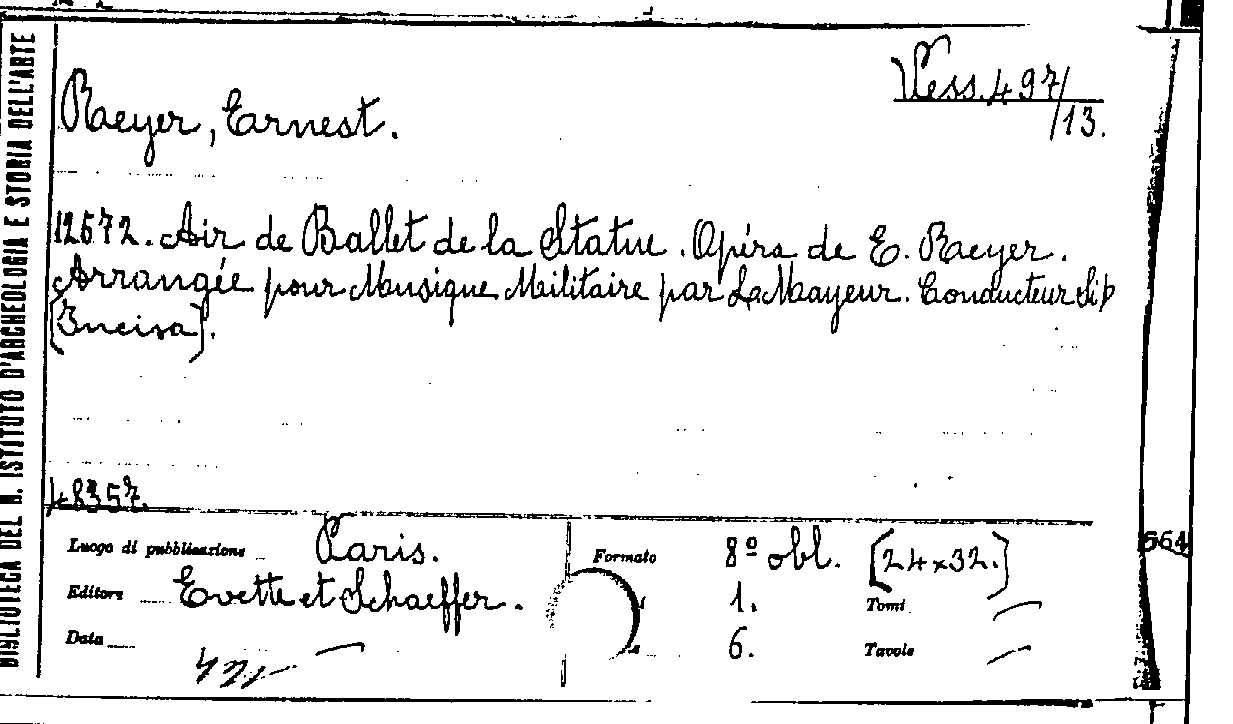 BIBLIOTECA DEL R. ISTITUTO D'ARCHEOLOGIA E STORIA DELL'ARTE
Vess. 497/13.
Raeyer, Ernest.
12672. Air de Ballet de la Statue. Opéra de E. Raeyer.
Arrangée pour Musique Militaire par La Mayeur. Conducteur Si b
[Incisa].
48357.
Luogo di pubblicazione Paris. Formato 8º obl. [24x32.]
564
Editore Evette et Schaeffer. 1. Tomi —
Data — 6. Tavole —